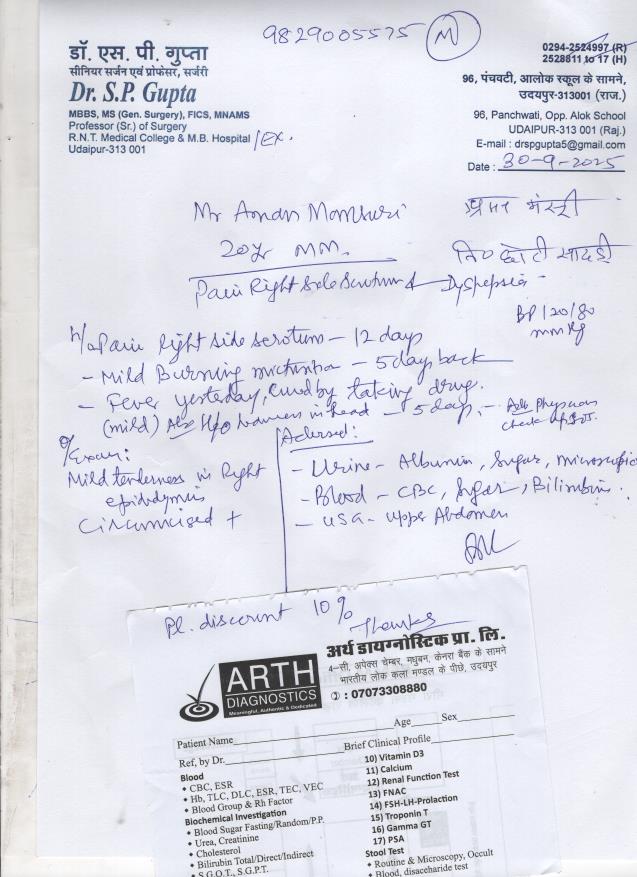 9829005575 M
डॉ. एस. पी. गुप्ता
सीनियर सर्जन एवं प्रोफेसर, सर्जरी
Dr. S.P. Gupta
MBBS, MS (Gen. Surgery), FICS, MNAMS
Professor (Sr.) of Surgery
R.N.T. Medical College & M.B. Hospital /Ex.
Udaipur-313 001
0294-2524997 (R)
2528811 to 17 (H)
96, पंचवटी, आलोक स्कूल के सामने,
उदयपुर-313001 (राज.)
96, Panchwati, Opp. Alok School
UDAIPUR-313 001 (Raj.)
E-mail : drspgupta5@gmail.com
Date : 30-9-2025
Mr Mansuri
20yr MM.
Pain Right Side Scrotum & Dyspepsia -
BP 120/80
mmHg
h/o Pain Right side scrotum - 12 days
- Mild Burning micturition - 5 days back
- Fever yesterday, cured by taking drug.
(mild) Also H/o in head - 5 days -
Physician
check up
o/Exam:
Mild tenderness in Right
epididymis
Circumcised +
Advised:
- Urine - Albumin, Sugar, microscopic
- Blood - CBC, Sugar, Bilirubin.
- USG - Upper Abdomen
Pl. discount 10%
Thanks
ARTH
DIAGNOSTICS
Meaningful, Authentic & Dedicated
अर्थ डायग्नोस्टिक प्रा. लि.
4-सी, अपेक्स चेम्बर, मधुबन, केनरा बैंक के सामने
भारतीय लोक कला मण्डल के पीछे, उदयपुर
: 07073308880
Patient Name Age Sex
Ref, by Dr. Brief Clinical Profile
Blood
• CBC, ESR
• Hb, TLC, DLC, ESR, TEC, VEC
• Blood Group & Rh Factor
Biochemical Investigation
• Blood Sugar Fasting/Random/P.P.
• Urea, Creatinine
• Cholesterol
• Bilirubin Total/Direct/Indirect
• S.G.O.T., S.G.P.T.
10) Vitamin D3
11) Calcium
12) Renal Function Test
13) FNAC
14) FSH-LH-Prolaction
15) Troponin T
16) Gamma GT
17) PSA
Stool Test
• Routine & Microscopy, Occult
• Blood, disaceharide test